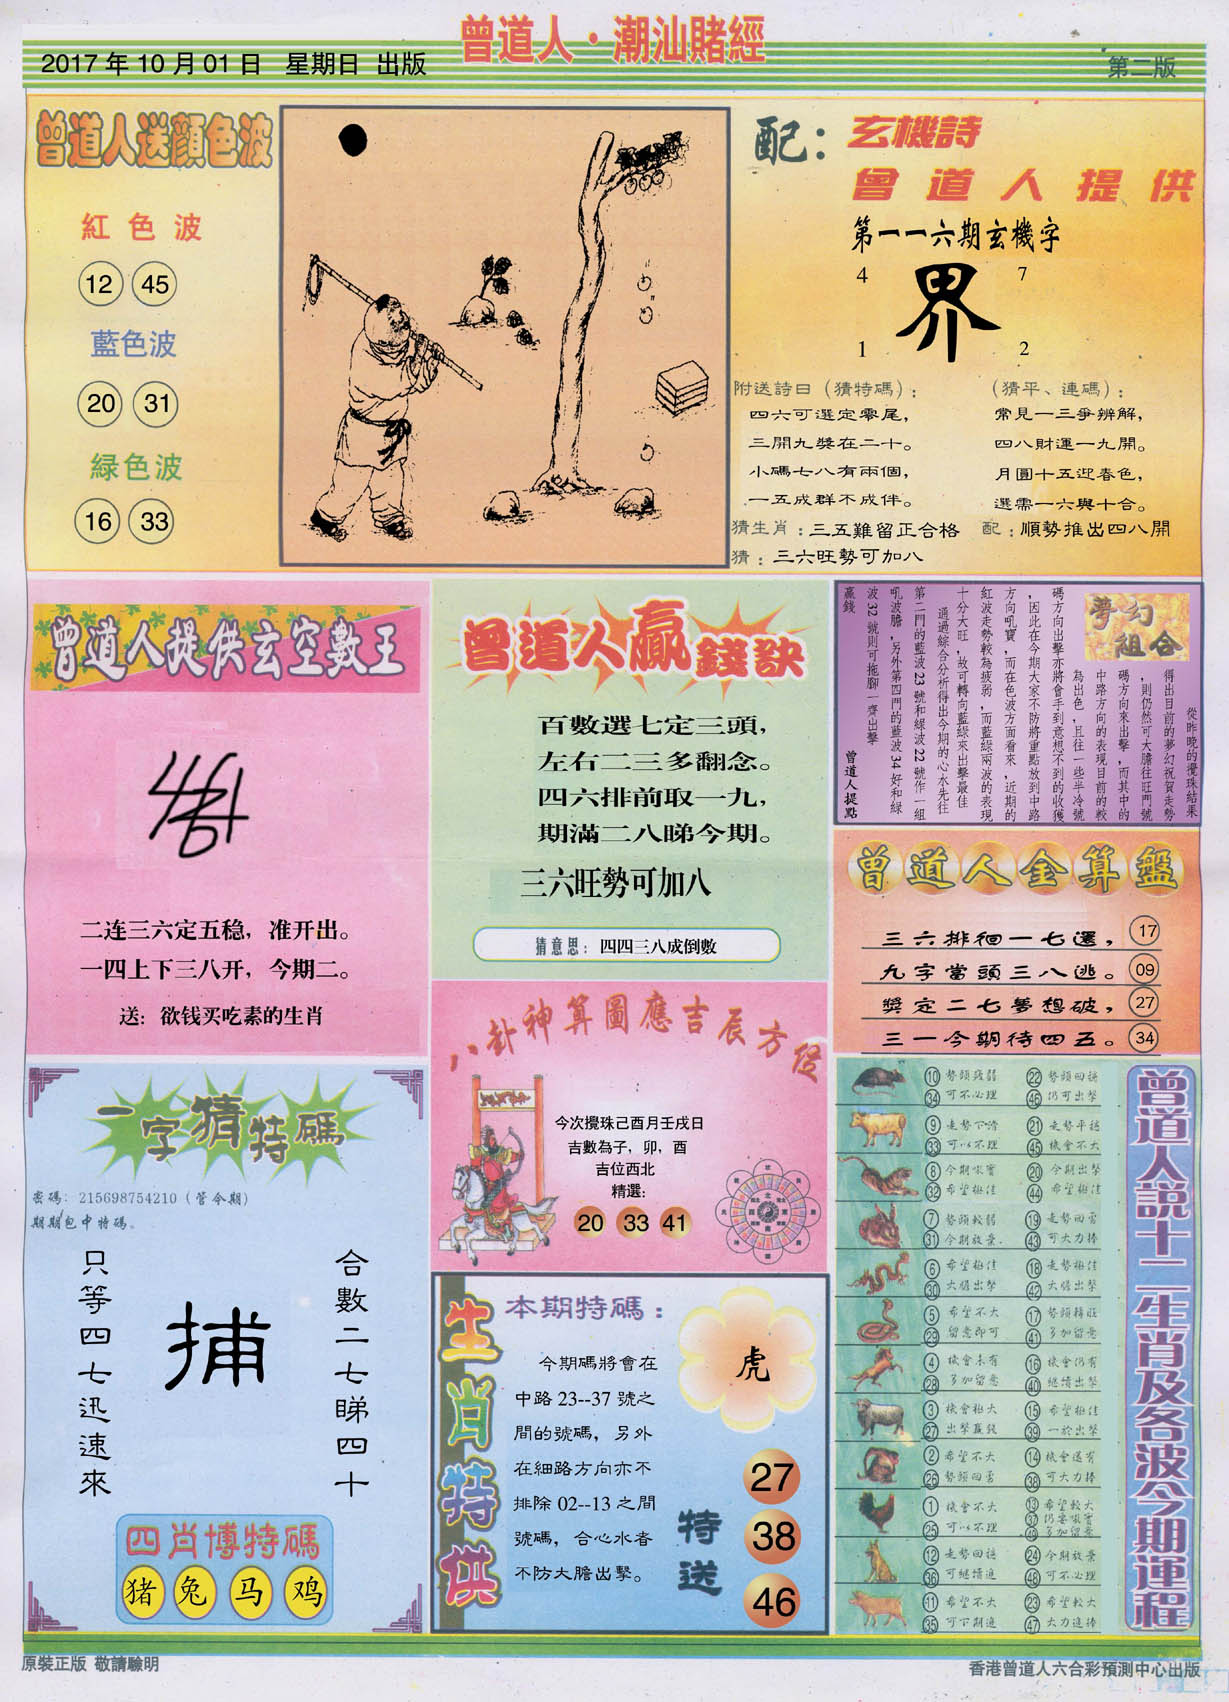 曾道人·潮汕賭經
2017年10月01日 星期日 出版
第二版
曾道人送顏色波
紅色波
12 45
藍色波
20 31
綠色波
16 33
配：玄機詩
曾道人提供
第一一六期玄機字
4 7
界
1 2
附送詩曰（猜特碼）：
四六可選定零尾，
三開九獎在二十。
小碼七八有兩個，
一五成群不成伴。
（猜平、連碼）：
常見一三爭辨解，
四八財運一九開。
月圓十五迎春色，
選需一六與十合。
猜生肖：三五難留正合格
配：順勢推出四八開
猜：三六旺勢可加八
曾道人提供玄空數王
二连三六定五稳，准开出。
一四上下三八开，今期二。
送：欲钱买吃素的生肖
曾道人贏錢訣
百數選七定三頭，
左右二三多翻念。
四六排前取一九，
期滿二八睇今期。
三六旺勢可加八
猜意思：四四三八成倒數
夢幻組合
從昨晚的攪珠結果
得出目前的夢幻祝賀走勢
，則仍然可大膽往旺門號
碼方向來出擊，而其中的
中路方向的表現目前的較
為出色，且往一些半冷號
碼方向出擊亦將會手到意想不到的收獲
，因此在今期大家不防將重點放到中路
方向吼寶，而在色波方面看來，近期的
紅波走勢較為疲弱，而藍綠兩波的表現
十分大旺，故可轉向藍綠來出擊最佳
通過綜合分析得出今期的心水先往
第二門的藍波23號和綠波22號作一組
吼波膽，另外第四門的藍波34好和綠
波32號則可拖腳一齊出擊
贏錢
曾道人提點
曾道人金算盤
三六排徊一七選， 17
九字當頭三八逃。 09
獎定二七夢想破， 27
三一今期待四五。 34
八卦神算圖應吉辰方位
今次攪珠己酉月壬戌日
吉數為子，卯，酉
吉位西北
精選：
20 33 41
一字猜特碼
密碼：215698754210（管今期）
期期包中特碼。
只等四七迅速來
捕
合數二七睇四十
四肖博特碼
猪 兔 马 鸡
生肖特供
本期特碼：
今期碼將會在
中路23--37號之
間的號碼，另外
在細路方向亦不
排除02--13之間
號碼，合心水者
不防大膽出擊。
虎
特送
27
38
46
曾道人說十二生肖及各波今期運程
10 勢頭疲弱 22 勢頭回擠
34 可不必理 46 仍可出擊
9 走勢下滑 21 走勢平穩
33 可以不理 45 機會不大
8 今期吼寶 20 今期出擊
32 希望極佳 44 希望極佳
7 勢頭較弱 19 走勢回勇
31 今期放棄 43 可大力捧
6 希望極佳 18 走勢極佳
30 大膽出擊 42 大膽出擊
5 希望不大 17 勢頭轉旺
29 留意即可 41 多加留意
4 機會未有 16 機會仍有
28 多加留意 40 繼續出擊
3 機會極大 15 希望極佳
27 出擊贏錢 39 一於出擊
2 希望不大 14 機會還有
26 勢頭回勇 38 可大力捧
1 機會不大 13 希望較大
25 可以不理 37 仍要吼實
49 多加留意
12 走勢回穩 24 今期放棄
36 可繼續追 48 可不必理
11 希望不大 23 希望較大
35 可下期追 47 大力追捧
原裝正版 敬請驗明
香港曾道人六合彩預測中心出版